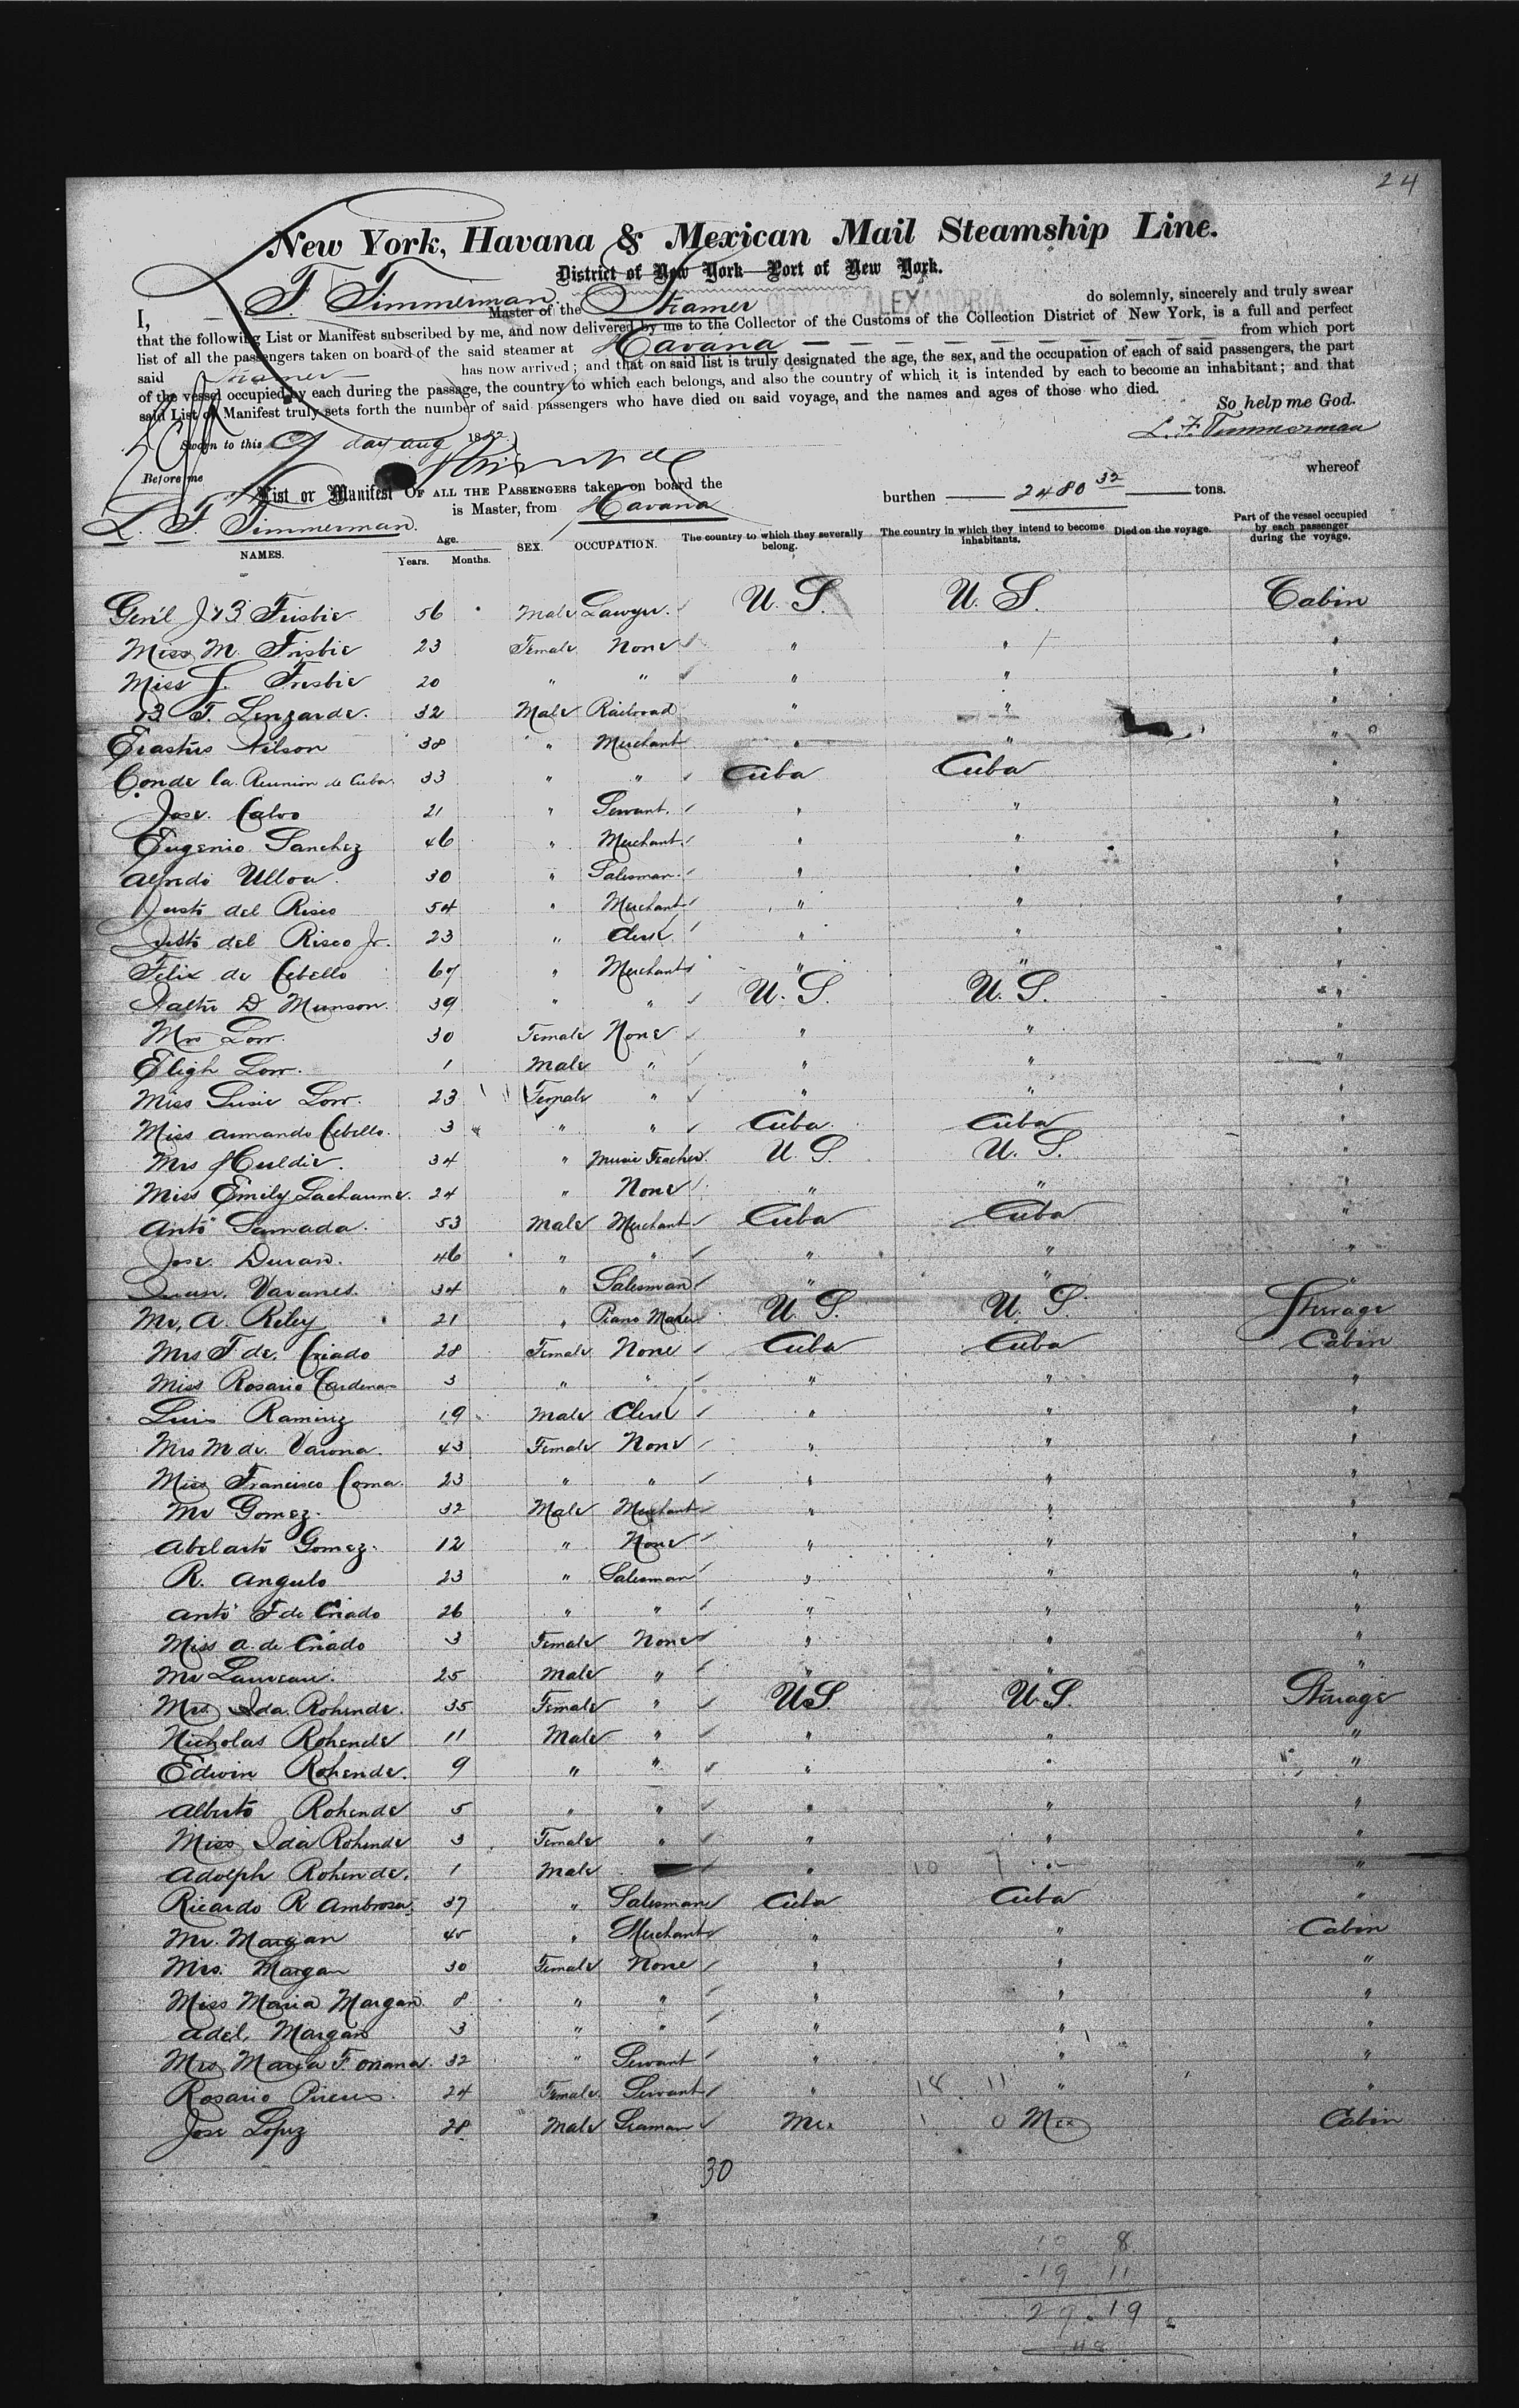 24
New York, Havana & Mexican Mail Steamship Line.
District of New York—Port of New York.
I, F Timmerman. Master of the Steamer CITY OF ALEXANDRIA do solemnly, sincerely and truly swear
that the following List or Manifest subscribed by me, and now delivered by me to the Collector of the Customs of the Collection District of New York, is a full and perfect
list of all the passengers taken on board of the said steamer at Havana from which port
said Steamer has now arrived; and that on said list is truly designated the age, the sex, and the occupation of each of said passengers, the part
of the vessel occupied by each during the passage, the country to which each belongs, and also the country of which it is intended by each to become an inhabitant; and that
said List or Manifest truly sets forth the number of said passengers who have died on said voyage, and the names and ages of those who died.
So help me God.
Sworn to this 9 day Aug 1882. L. F. Timmerman
Before me
List or Manifest OF ALL THE PASSENGERS taken on board the whereof
L. F. Timmerman. is Master, from Havana burthen 2480 32 tons.
NAMES. Age. Years. Months. SEX. OCCUPATION. The country to which they severally belong. The country in which they intend to become inhabitants. Died on the voyage. Part of the vessel occupied by each passenger during the voyage.
Gen'l J B Frisbie 56 Male Lawyer. U. S. U. S. Cabin
Miss M. Frisbie 23 Female None " " "
Miss J. Frisbie 20 " " " " "
B T. Lenzarde. 32 Male Railroad " " "
Erastus Nilson 38 " Merchant " " "
Conde la Reunion de Cuba. 33 " " Cuba Cuba "
Jose Calvo 21 " Servant. " " "
Eugenio Sanchez 46 " Merchant " " "
Alfredo Ulloa. 30 " Salesman. " " "
Justo del Risco 54 " Merchant " " "
Justo del Risco Jr. 23 " Clerk " " "
Felix de Cebello 67 " Merchant " " "
Walter D Munson. 39 " " U. S. U. S. "
Mrs Low. 30 Female None " " "
Eligh Low. 1 Male " " " "
Miss Susie Low. 23 Female " " " "
Miss Armando Cebello. 3 " " Cuba. Cuba "
Mrs Huldie. 34 " Music Teacher. U. S. U. S. "
Miss Emily Lachaume. 24 " None " " "
Anto Samada. 53 Male Merchant Cuba Cuba "
Jose Duran. 46 " " " " "
Juan Varanes. 34 " Salesman " " "
Mr. A. Riley 21 " Piano Maker U. S. U. S. Steerage
Mrs F de. Criado 28 Female None Cuba Cuba Cabin
Miss Rosario Cardenas 3 " " " " "
Luis Ramirez 19 Male Clerk " " "
Mrs M de. Varona. 43 Female None " " "
Miss Francisco Coma. 23 " " " " "
Mr Gomez. 32 Male Merchant " " "
Abelarto Gomez. 12 " None " " "
R. Angulo 23 " Salesman " " "
Anto F de Criado 26 " " " " "
Miss A. de Criado 3 Female None " " "
Mr Lauveau. 25 Male " " " "
Mrs. Ida. Rohende. 35 Female " U S. U. S. Steerage
Nicholas Rohende 11 Male " " " "
Edwin Rohende. 9 " " " " "
Alberto Rohende 5 " " " " "
Miss Ida Rohende 3 Female " " " "
Adolph Rohende. 1 Male " " "
Ricardo R Ambrosa. 37 " Salesman Cuba Cuba "
Mr. Margan 45 " Merchant " " Cabin
Mrs. Margan 30 Female None " " "
Miss Maria Margan 8 " " " " "
Adel. Margan 3 " " " " "
Mrs Maria F. Oriana. 32 " Servant " " "
Rosario Pireus. 24 Female. Servant " 18 11 " "
Jose Lopez 28 Male Seaman Mex 0 Mex Cabin
30
10 8
19 11
29 19
48